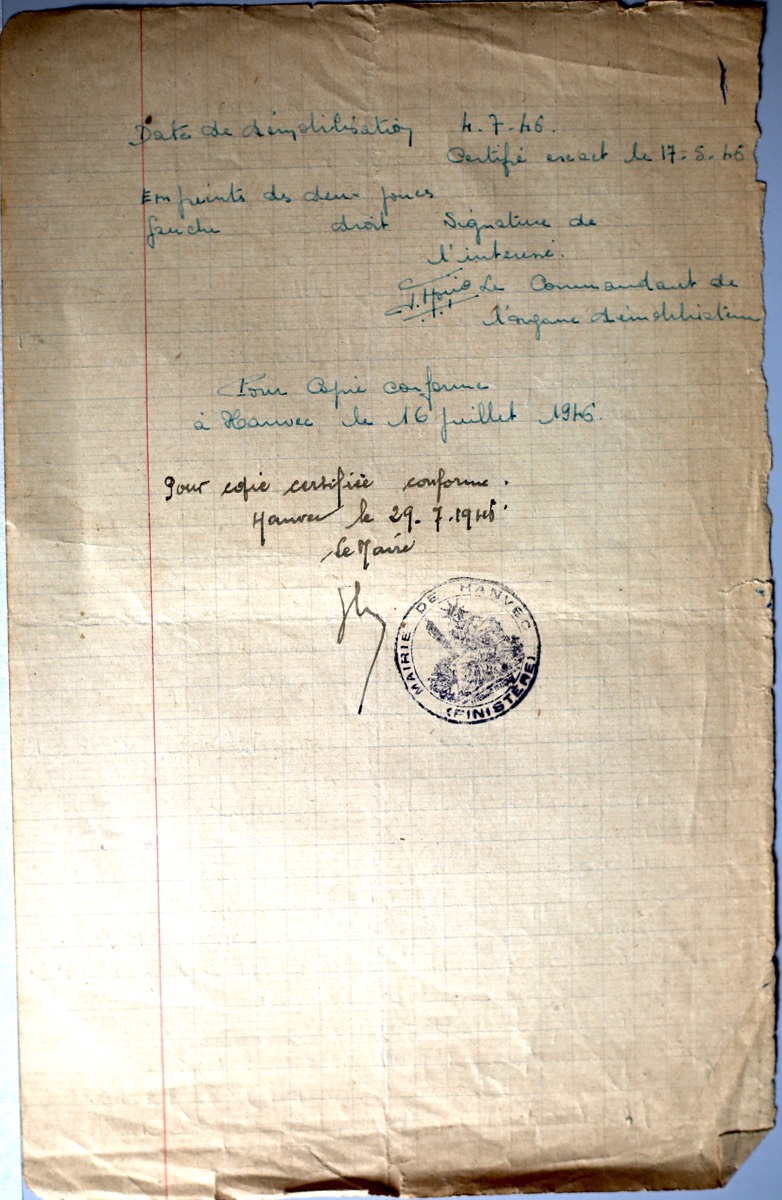 Date de démobilisation 4.7.46.
Certifié exact le 17-5-46
Empreints des deux pouces
gauche droit Signature de
l'interessé.
Le Commandant de
l'organe démobilisateur
Pour Copie conforme
à Hanvec le 16 juillet 1946.
Pour copie certifiée conforme.
Hanvec le 29.7.1946
Le Maire
MAIRIE DE HANVEC
(FINISTÈRE)